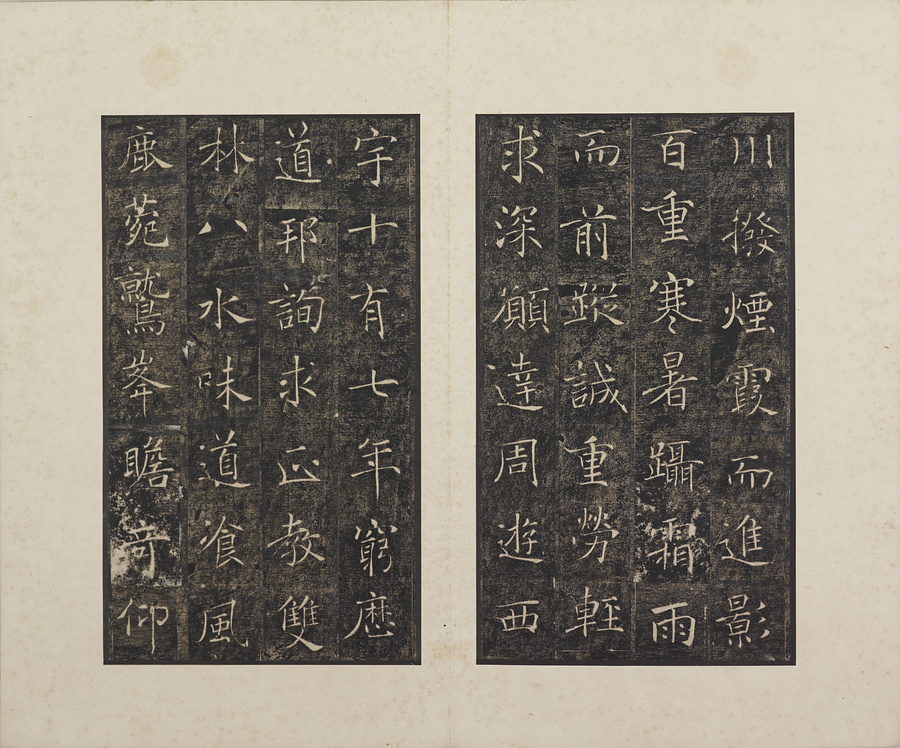 川撥煙霞而進影
百重寒暑躡霜雨
而前蹤誠重勞輕
求深願達周遊西
宇十有七年窮歷
道邦詢求正教雙
林八水味道飡風
鹿菀鷲峯瞻奇仰